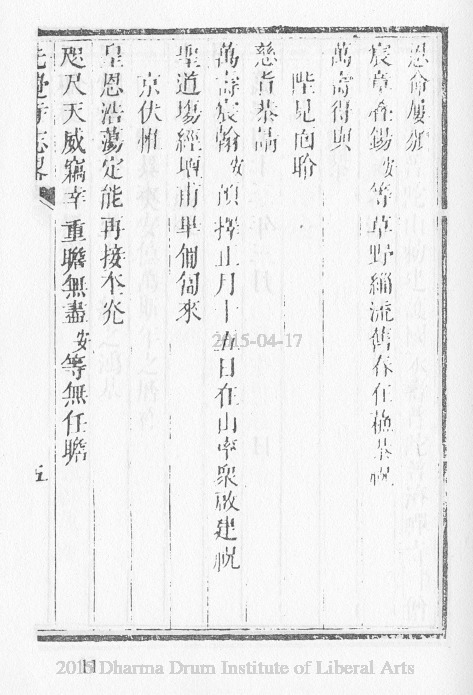 恩命屢頒
宸章叠錫安等草野緇流舊春在穐恭祝
萬壽得與
陛見咫聆
慈旨恭謁
萬壽宸翰安預擇正月十五日在山率衆啟建祝
聖道塲經壇甫畢匍匐來
京伏惟
皇恩浩蕩定能再接本光
咫尺天威竊幸重瞻無盡安等無任瞻
五
2015-04-17
2015 Dharma Drum Institute of Liberal Arts